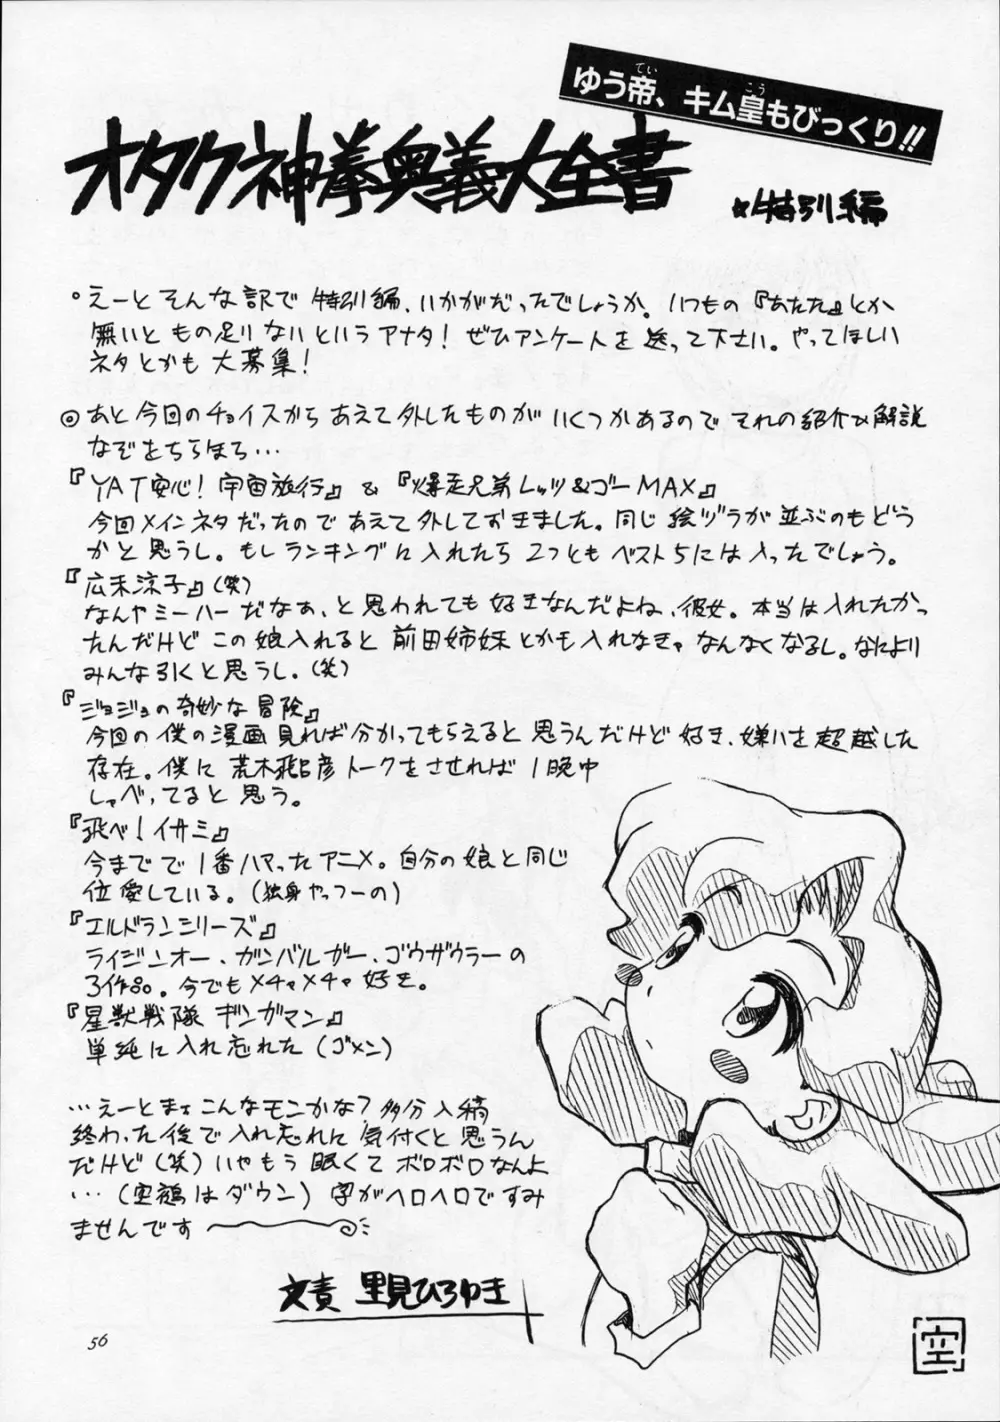 ゆう帝、キム皇もびっくり!!
オタク神拳奥義大全書
★特別編
・えーとそんな訳で特別編、いかがだったでしょうか。いつもの『あたた』とか
無いともの足りないというアナタ!ぜひアンケートを送って下さい。やってほしい
ネタとかも大募集!
◎あと今回のチョイスからあえて外したものがいくつかあるのでそれの紹介&解説
なぞをちらほら…
『YAT安心!宇宙旅行』&『爆走兄弟レッツ&ゴーMAX』
今回メインネタだったのであえて外しておきました。同じ絵ヅラが並ぶのもどう
かと思うし。もしランキングに入れたら2つともベスト5には入ったでしょう。
『広末涼子』(笑)
なんやミーハーだなぁ、と思われても好きなんだよね、彼女。本当は入れたかっ
たんだけどこの娘入れると前田姉妹とかも入れなきゃなんなくなるし。なにより
みんな引くと思うし。(笑)
『ジョジョの奇妙な冒険』
今回の僕の漫画見れば分かってもらえると思うんだけど好き、嫌いを超越した
存在。僕に荒木飛呂彦トークをさせれば1晩中
しゃべってると思う。
『飛べ!イサミ』
今までで1番ハマったアニメ。自分の娘と同じ
位愛している。(独身やっつーの)
『エルドランシリーズ』
ライジンオー、ガンバルガー、ゴウザウラーの
3作品。今でもメチャメチャ好き。
『星獣戦隊ギンガマン』
単純に入れ忘れた(ゴメン)
…えーとまぁこんなモンかな?多分入稿
終わった後で入れ忘れに気付くと思うん
だけど(笑)いやもう眠くてボロボロなんよ
…(空鶴はダウン)字がヘロヘロですみ
ませんです
文責 里見ひろゆき
空
56